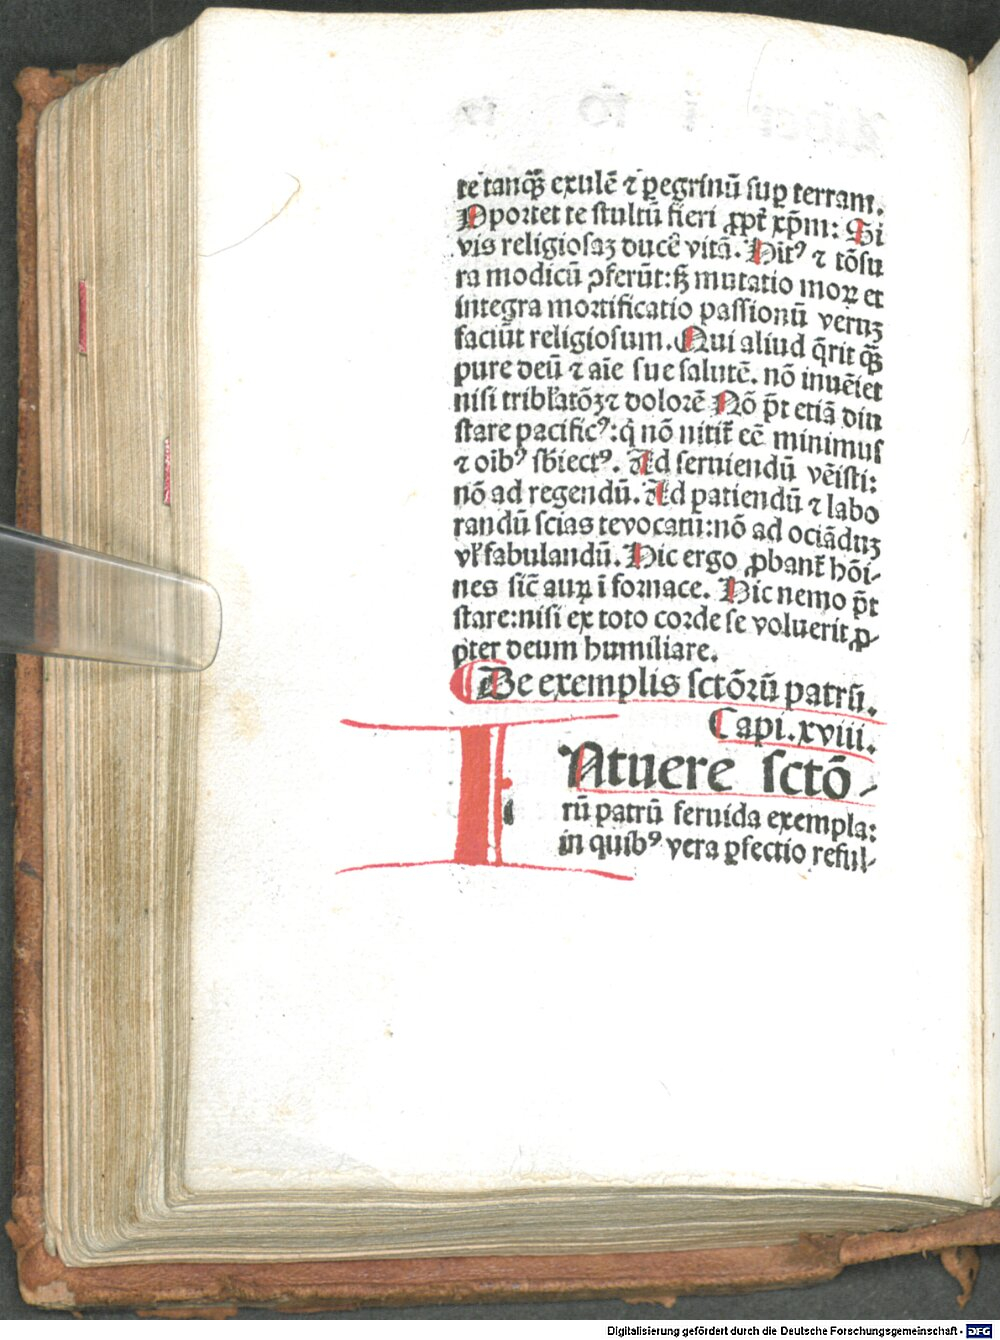 te tanq̃ȝ exulẽ ⁊ ꝑegrinũ suꝑ terram.
Oportet te stultũ fieri ꝓpt̃ xp̃m: Si
vis religiosaȝ ducẽ vitã. Hitꝰ ⁊ tõsu
ra modicũ ꝯferũt: sȝ mutatio moꝝ et
integra mortificatio passionũ veruȝ
faciũt religiosum. Qui aliud q̃rit q̃ȝ
pure deũ ⁊ aĩe sue salutẽ. nõ inuẽiet
nisi tribl̃atõȝ ⁊ dolorẽ Nõ p̃t etiã diu
stare pacificꝰ: q̃ nõ nitit̃ eẽ minimus
⁊ oibꝰ sbiectꝰ. Ad seruiendũ vẽisti:
nõ ad regendũ. Ad patiendũ ⁊ labo
randũ scias te vocatũ: nõ ad ociãduȝ
vl̃ fabulandũ. Hic ergo ꝓbant̃ hõi-
nes sic̃ auꝝ ĩ fornace. Hic nemo p̃t
stare: nisi ex toto corde se voluerit ꝓ-
pter deum humiliare.
De exemplis sctõrũ patrũ.
Capi. xviii.
INtuere sctõ-
rũ patrũ feruida exempla:
in quibꝰ vera ꝑfectio reful-
Digitalisierung gefördert durch die Deutsche Forschungsgemeinschaft - DFG